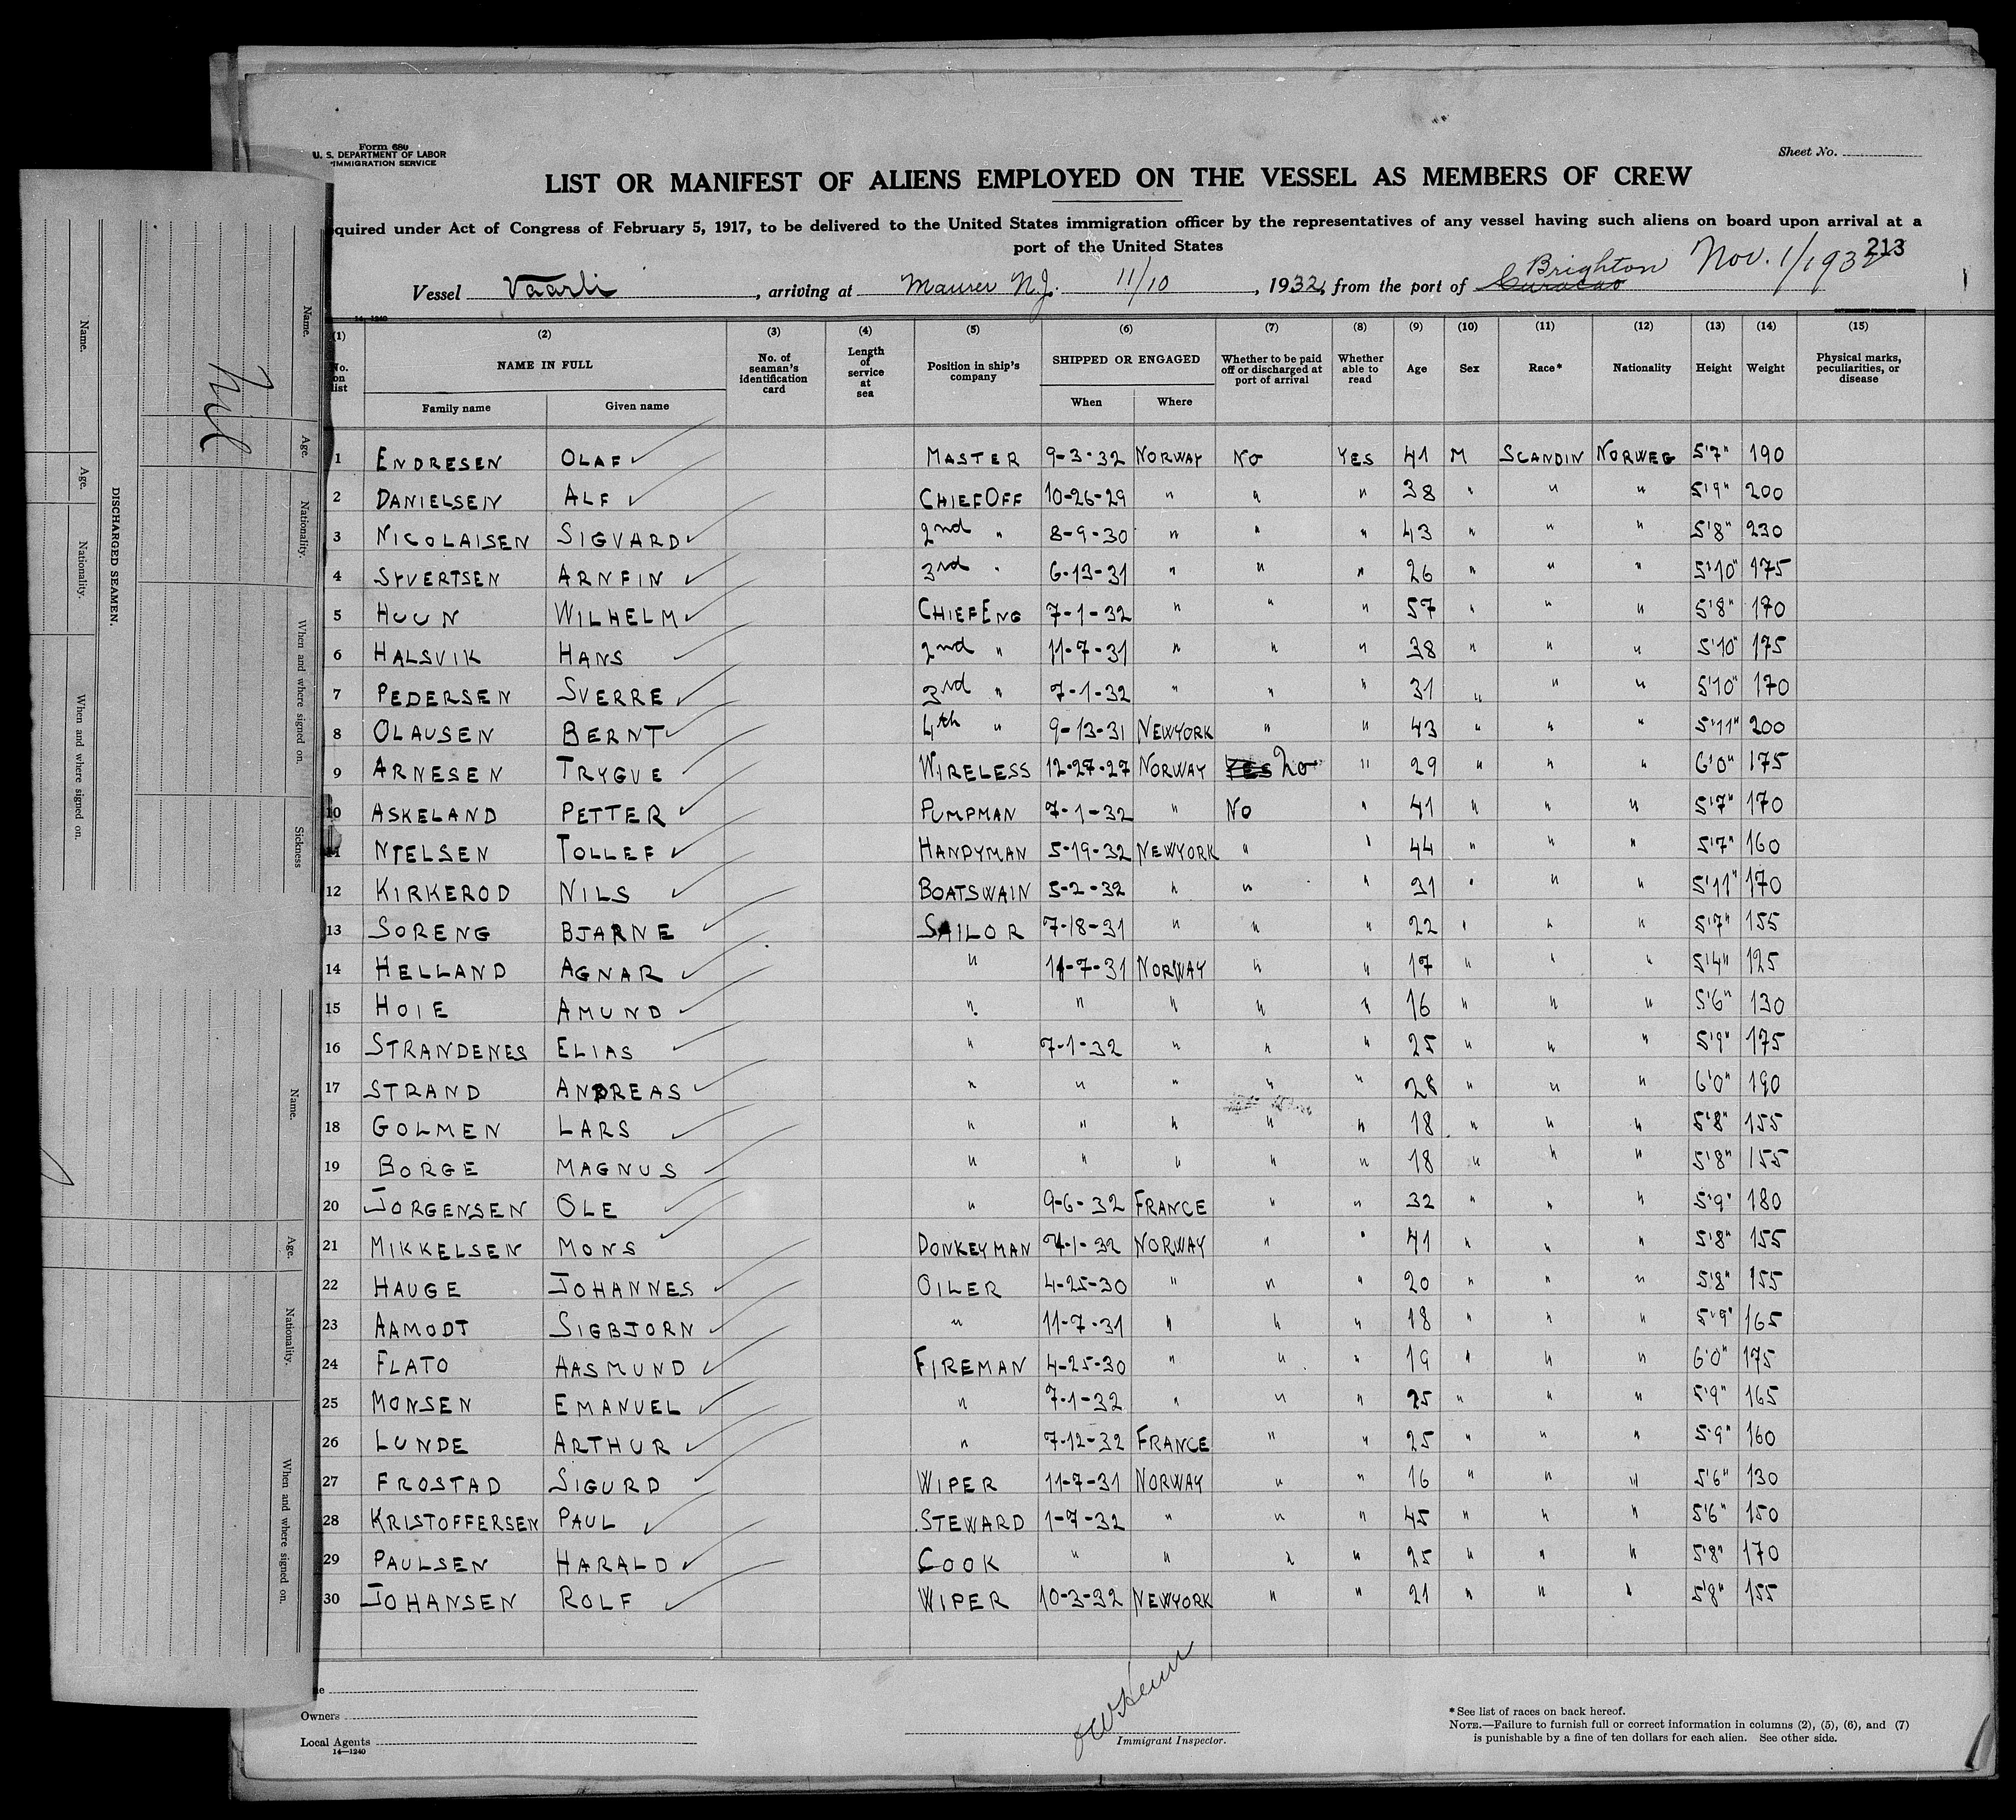 Form 680
U. S. DEPARTMENT OF LABOR
IMMIGRATION SERVICE
Sheet No.
LIST OR MANIFEST OF ALIENS EMPLOYED ON THE VESSEL AS MEMBERS OF CREW
quired under Act of Congress of February 5, 1917, to be delivered to the United States immigration officer by the representatives of any vessel having such aliens on board upon arrival at a
port of the United States
213
Vessel Vaarli, arriving at Maurer N.J. 11/10, 1932, from the port of Curacao Brighton Nov. 1/1932
14-1240
(1) (2) (3) (4) (5) (6) (7) (8) (9) (10) (11) (12) (13) (14) (15)
No. on list NAME IN FULL No. of seaman's identification card Length of service at sea Position in ship's company SHIPPED OR ENGAGED Whether to be paid off or discharged at port of arrival Whether able to read Age Sex Race* Nationality Height Weight Physical marks, peculiarities, or disease
Family name Given name When Where
1 ENDRESEN OLAF MASTER 9-3-32 NORWAY NO YES 41 M SCANDIN NORWEG 5'7" 190
2 DANIELSEN ALF CHIEF OFF 10-26-29 " " " 38 " " " 5'9" 200
3 NICOLAISEN SIGVARD 2nd " 8-9-30 " " " 43 " " " 5'8" 230
4 SYVERTSEN ARNFIN 3rd " 6-13-31 " " " 26 " " " 5'10" 175
5 HUUN WILHELM CHIEF ENG 7-1-32 " " " 57 " " " 5'8" 170
6 HALSVIK HANS 2nd " 11-7-31 " " " 38 " " " 5'10" 175
7 PEDERSEN SVERRE 3rd " 7-1-32 " " " 31 " " " 5'10" 170
8 OLAUSEN BERNT 4th " 9-13-31 NEWYORK " " 43 " " " 5'11" 200
9 ARNESEN TRYGVE WIRELESS 12-27-27 NORWAY YES No " 29 " " " 6'0" 175
10 ASKELAND PETTER PUMPMAN 7-1-32 " NO " 41 " " " 5'7" 170
11 NIELSEN TOLLEF HANDYMAN 5-19-32 NEWYORK " " 44 " " " 5'7" 160
12 KIRKEROD NILS BOATSWAIN 5-2-32 " " " 31 " " " 5'11" 170
13 SORENG BJARNE SAILOR 7-18-31 " " " 22 " " " 5'7" 155
14 HELLAND AGNAR " 11-7-31 NORWAY " " 17 " " " 5'4" 125
15 HOIE AMUND " " " " " 16 " " " 5'6" 130
16 STRANDENES ELIAS " 7-1-32 " " " 25 " " " 5'9" 175
17 STRAND ANDREAS " " " " " 28 " " " 6'0" 190
18 GOLMEN LARS " " " " " 18 " " " 5'8" 155
19 BORGE MAGNUS " " " " " 18 " " " 5'8" 155
20 JORGENSEN OLE " 9-6-32 FRANCE " " 32 " " " 5'9" 180
21 MIKKELSEN MONS DONKEYMAN 7-1-32 NORWAY " " 41 " " " 5'8" 155
22 HAUGE JOHANNES OILER 4-25-30 " " " 20 " " " 5'8" 155
23 AAMODT SIGBJORN " 11-7-31 " " " 18 " " " 5'9" 165
24 FLATO AASMUND FIREMAN 4-25-30 " " " 19 " " " 6'0" 175
25 MONSEN EMANUEL " 7-1-32 " " " 25 " " " 5'9" 165
26 LUNDE ARTHUR " 7-12-32 FRANCE " " 25 " " " 5'9" 160
27 FROSTAD SIGURD WIPER 11-7-31 NORWAY " " 16 " " " 5'6" 130
28 KRISTOFFERSEN PAUL STEWARD 1-7-32 " " " 45 " " " 5'6" 150
29 PAULSEN HARALD COOK " " " " 25 " " " 5'8" 170
30 JOHANSEN ROLF WIPER 10-3-32 NEWYORK " " 21 " " " 5'8" 155
Owners
Local Agents
14—1240
Immigrant Inspector.
*See list of races on back hereof.
NOTE.—Failure to furnish full or correct information in columns (2), (5), (6), and (7)
is punishable by a fine of ten dollars for each alien. See other side.
DISCHARGED SEAMEN.
Name. Age. Nationality. When and where signed on.
Name. Age. Nationality. When and where signed on. Sickness
Nil
Name. Age. Nationality. When and where signed on.